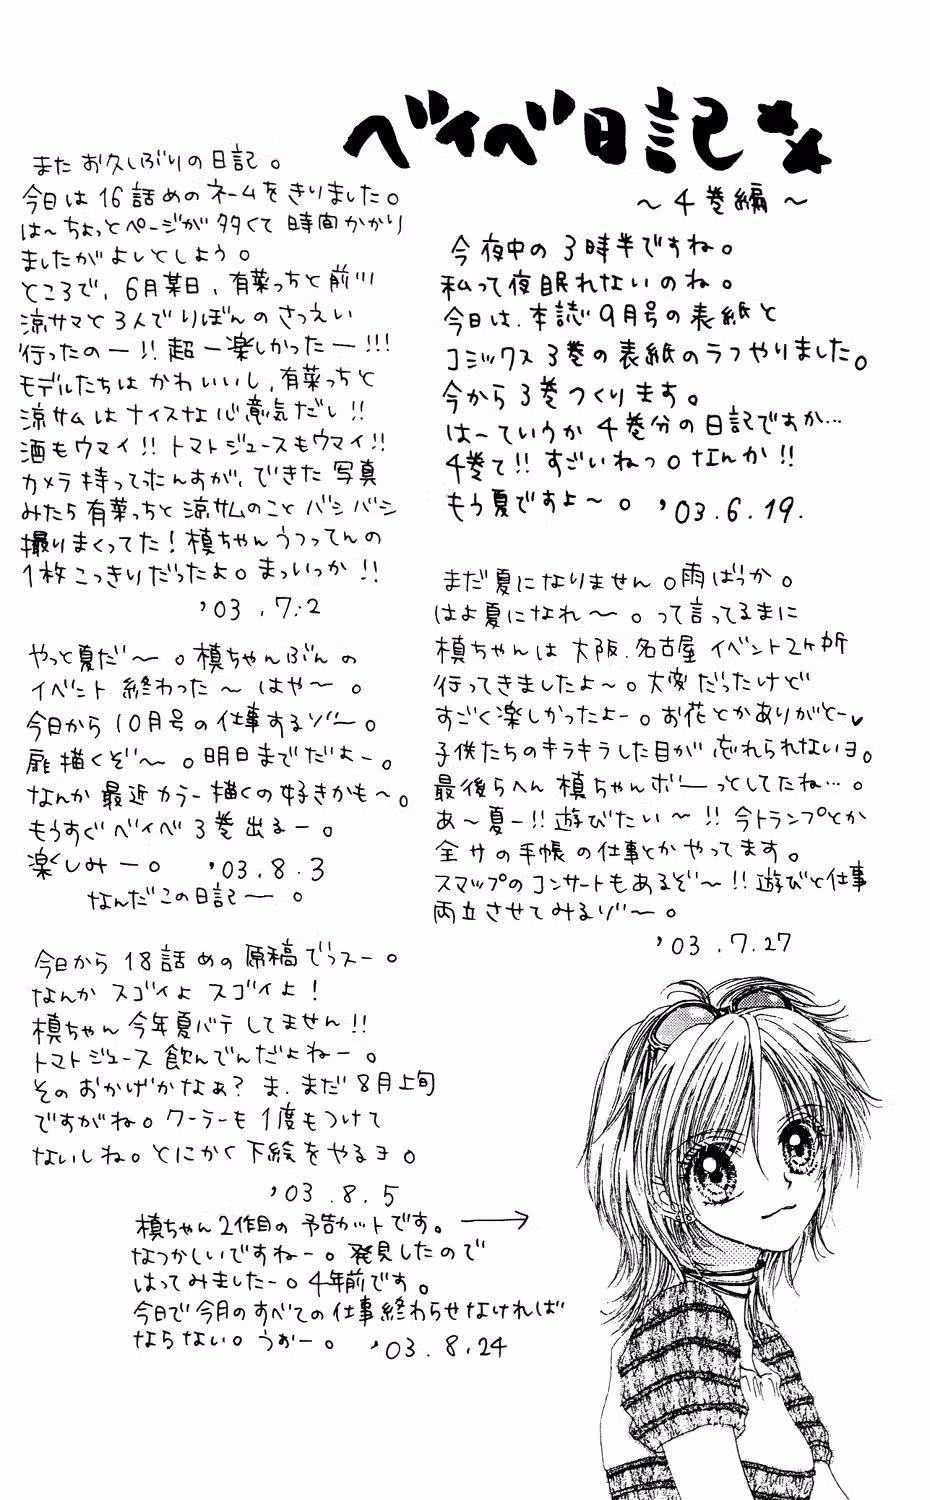 ベイベ日記
～4巻編～
今夜中の3時半ですね。
私って夜眠れないのね。
今日は、本誌9月号の表紙と
コミックス3巻の表紙のラフやりました。
今から3巻つくります。
はーていうか4巻分の日記ですか…
4巻て!!すごいねっ。なんか!!
もう夏ですよ～。'03.6.19.
まだ夏になりません。雨ばっか。
はよ夏になれ～。って言ってるまに
槙ちゃんは大阪、名古屋イベント2ヶ所
行ってきましたよ～。大変だったけど
すごく楽しかったよー。お花とかありがとー♥
子供たちのキラキラした目が忘れられないヨ。
最後らへん槙ちゃんボーっとしてたね…。
あ～夏ー!!遊びたい～!!今トランプとか
全サの手帳の仕事とかやってます。
スマップのコンサートもあるぞ～!!遊びと仕事
両立させてみるゾ～。
'03.7.27
またお久しぶりの日記。
今日は16話めのネームをきりました。
は～ちょっとページが多くて時間かかり
ましたがよしとしよう。
ところで、6月某日、有菜っちと前川
涼サマと3人でりぼんのさつえい
行ったのー!!超ー楽しかったー!!!
モデルたちはかわいいし、有菜っちと
涼サムはナイスな心意気だし!!
酒もウマイ!!トマトジュースもウマイ!!
カメラ持ってたんすが、できた写真
みたら有菜っちと涼サムのことバシバシ
撮りまくってた!槙ちゃんうつってんの
1枚こっきりだったよ。まっいっか!!
'03.7.2
やっと夏だ～。槙ちゃんぶんの
イベント終わった～はや～。
今日から10月号の仕事するゾ～。
扉描くぞ～。明日までだよー。
なんか最近カラー描くの好きかも～。
もうすぐベイベ3巻出るー。
楽しみー。'03.8.3
なんだこの日記～。
今日から18話めの原稿でっスー。
なんかスゴイよスゴイよ!
槙ちゃん今年夏バテしてません!!
トマトジュース飲んでんだよねー。
そのおかげかなぁ?ま、まだ8月上旬
ですがね。クーラーも1度もつけて
ないしね。とにかく下絵をやるヨ。
'03.8.5
槙ちゃん2作目の予告カットです。→
なつかしいですねー。発見したので
はってみましたー。4年前です。
今日で今月のすべての仕事終わらせなければ
ならない。うぉー。'03.8.24